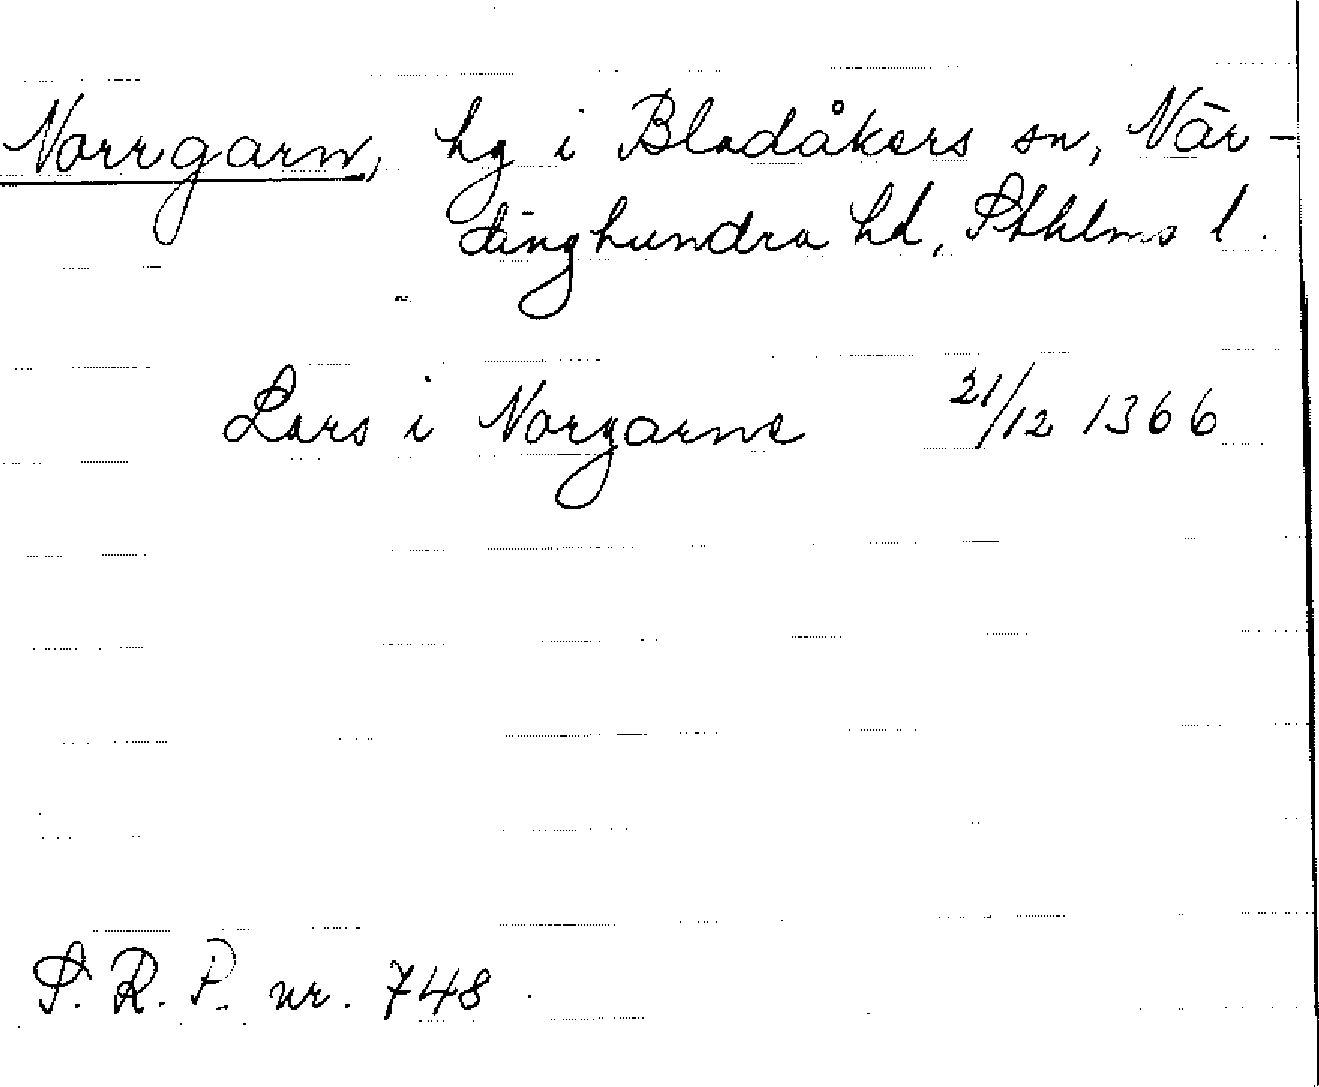 Norrgarn, hg i Bladåkers sn, När-
dinghundra hd, Sthlms l.
Lars i Norgarne 21/12 1366
S. R. P. nr. 748